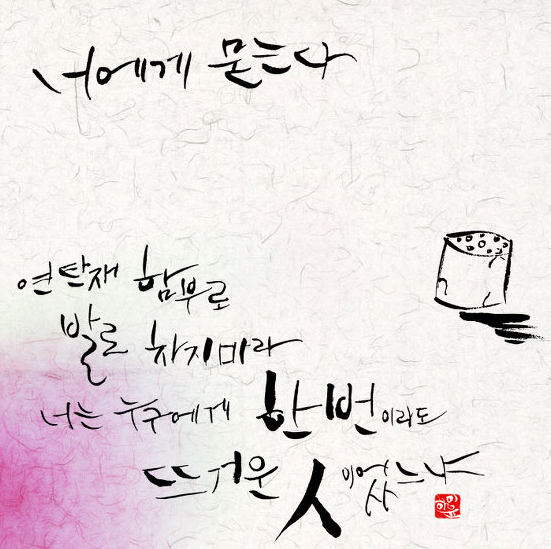 너에게 묻는다
연탄재 함부로
발로 차지마라
너는 누구에게 한번이라도
뜨거운 人이었느냐